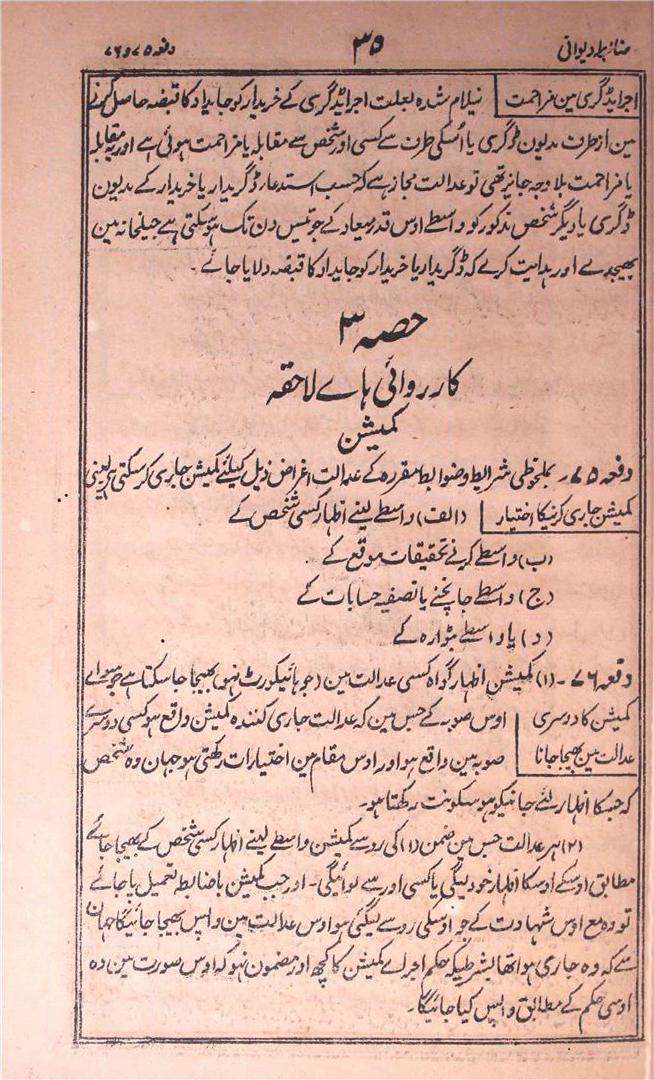 ضابطہ دیوانی
۳۵
دفعہ ۷۵ و ۷۶
اجراے ڈگری مین مزاحمت
نیلام شدہ بعلت اجراے ڈگری کے خریدار کو جایداد کا قبضہ حاصل کرنے
مین از طرف مدیون ڈگری یا اُسکی طرف سے کسی اور شخص سے مقابلہ یا مزاحمت ہوئی ہے اور یہ مقابلہ
یا مزاحمت بلا وجہ جایز تھی تو عدالت مجاز ہے کہ حسب استدعاء ڈگریدار یا خریدار کے مدیون
ڈگری یا دیگر شخص مذکور کو واسطے اوس قدر میعاد کے جو تیس دن تک ہو سکتی ہے جیلخانہ مین
بھیجدے اور ہدایت کرے کہ ڈگریدار یا خریدار کو جایداد کا قبضہ دلایا جائے ۔
حصہ ۳
کارروائی ہاے لاحقہ
کمیشن
دفعہ ۷۵ ۔ بملحوظی شرایط و ضوابط مقررہ کے عدالت اغراض ذیل کیلئے کمیشن جاری کرسکتی ہے یعنی
کمیشن جاری کرنیکا اختیار
(الف) واسطے لینے اظہار کسی شخص کے
(ب) واسطے کرنے تحقیقات موقع کے
(ج) واسطے جانچنے یا تصفیہ حسابات کے
(د) یا واسطے بٹوارہ کے
دفعہ ۷۶ ۔ (۱) کمیشن اظہار گواہ کسی عدالت مین (جو ہائیکورٹ نہو) بھیجا جا سکتا ہے جو سواے
کمیشن کا دوسری
اوس صوبہ کے جس مین کہ عدالت جاری کنندہ کمیشن واقع ہو کسی دوسرے
عدالت مین بھیجا جانا
صوبہ مین واقع ہو اور اوس مقام مین اختیارات رکھتی ہو جہان وہ شخص
کہ جسکا اظہار لئے جانیکو ہو سکونت رکھتا ہو۔
(۲) ہر عدالت جس مین ضمن (۱) کی رو سے کمیشن واسطے لینے اظہار کسی شخص کے بھیجا جائے
مطابق اوسکے اوسکا اظہار خود لیگی یا کسی اور سے لوائیگی ۔ اور جب کمیشن باضابطہ تعمیل پا جائے
تو وہ مع اوس شہادت کے جو اوسکی رو سے لیگئی ہو اوس عدالت مین واپس بھیجا جائیگا جہان
سے کہ وہ جاری ہوا تھا بشرطیکہ حکم اجراے کمیشن کا کچھ اور مضمون نہو کہ اوس صورت مین وہ
اوسی حکم کے مطابق واپس کیا جائیگا۔